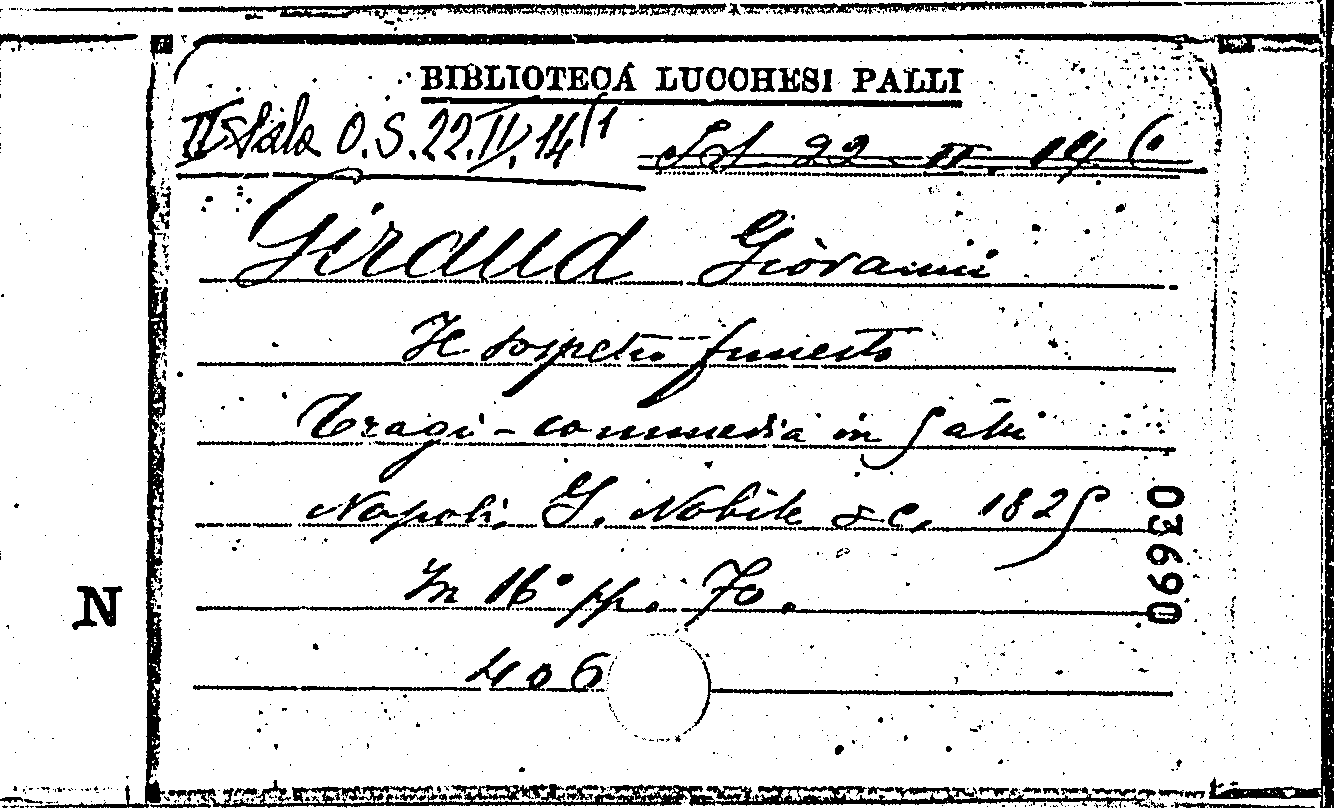 BIBLIOTECA LUCCHESI PALLI
II Sala O.S.22.II.14/1
22 II. 14 (1
Giraud Giovanni
Il sospetto funesto
Tragi-commedia in 5 atti
Napoli, G. Nobile & C. 1825
In 16° pp. 70.
406
N
03690